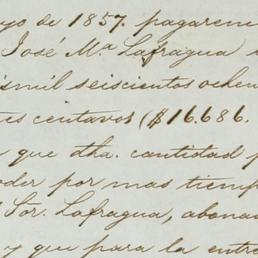 yo de 1857. pagaren
José Ma Lafragua
ismil seiscientos ochen
es centavos ($16.686.
que dha. cantidad p
oder por mas tiemp
Sor. Lafragua, abona
y que para la entr